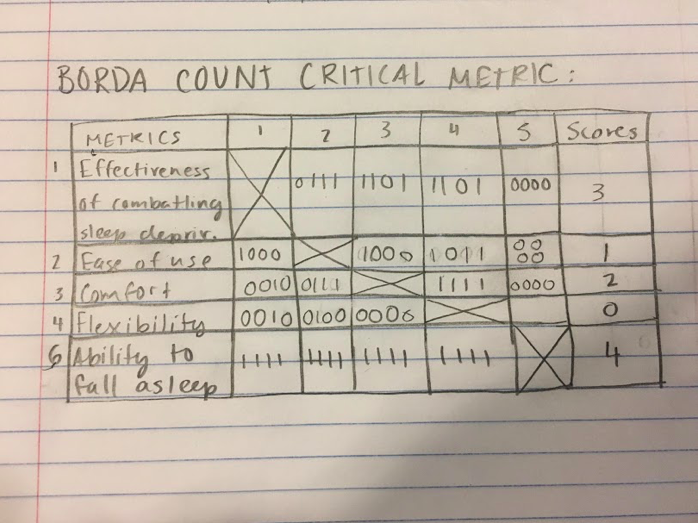 BORDA COUNT CRITICAL METRIC:
METRICS 1 2 3 4 5 Scores
1 Effectiveness of combatting sleep depriv. 0111 1101 1101 0000 3
2 Ease of use 1000 1000 1011 0000 1
3 Comfort 0010 0111 1111 0000 2
4 Flexibility 0010 0100 0000 0
5 Ability to fall asleep 1111 1111 1111 1111 4